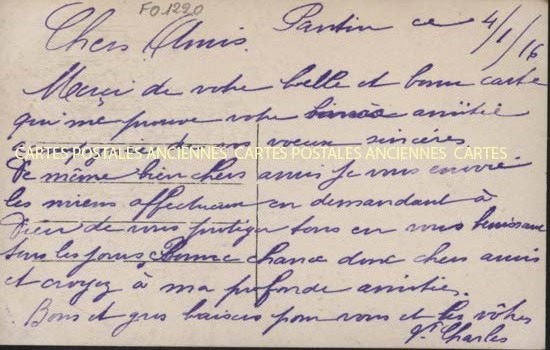 FO1290
Pantin ce 4/1/16
Chers Amis
Merçi de votre belle et bonne carte
qui me prouve votre amitié
voeux sincères
CARTES POSTALES ANCIENNES CARTES POSTALES ANCIENNES CARTES
De même bien chers amis je vous envoie
les miens affectueux en demandant à
Dieu de vous protiger tous en vous benissant
tous les jours Bonne chance donc chers amis
et croyez à ma profonde amitiés.
Bons et gros baisers pour vous et les vôtres
Charles